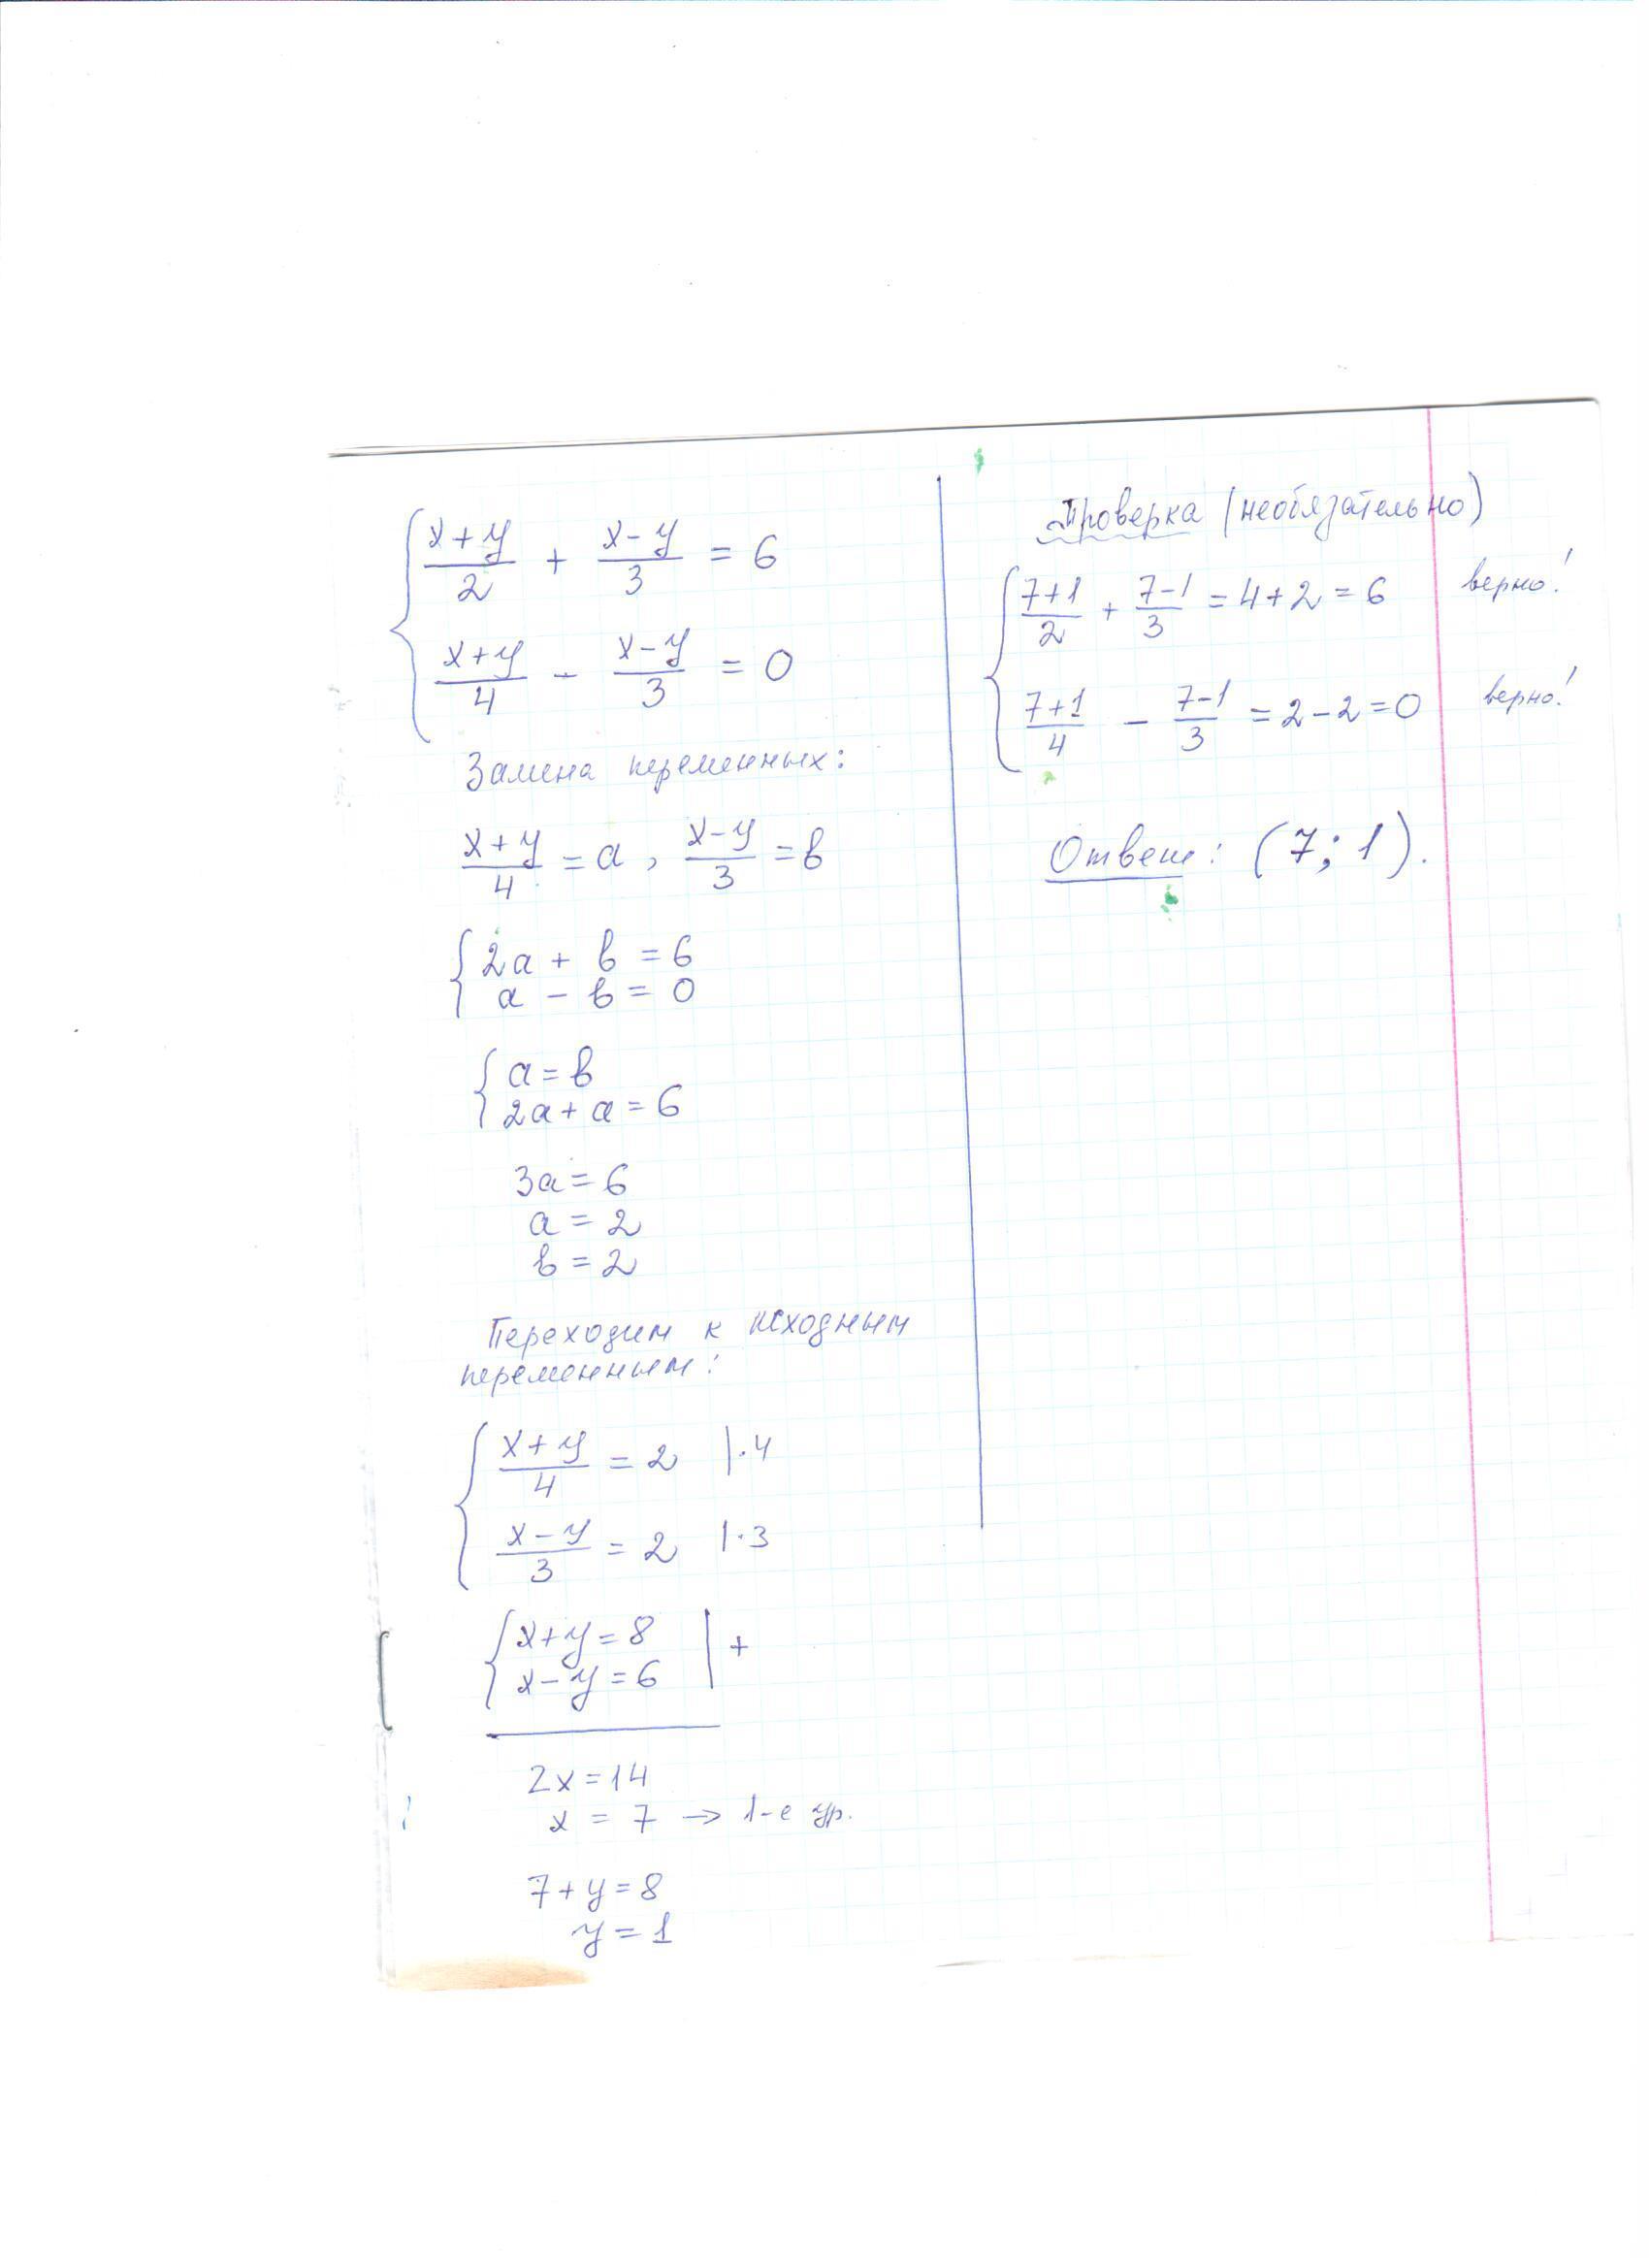 { (x+y)/2 + (x-y)/3 = 6
(x+y)/4 - (x-y)/3 = 0
Замена переменных:
(x+y)/4 = a, (x-y)/3 = в
{ 2a + в = 6
a - в = 0
{ a = в
2a + a = 6
3a = 6
a = 2
в = 2
Переходим к исходным
переменным:
{ (x+y)/4 = 2 |·4
(x-y)/3 = 2 |·3
{ x+y = 8 | +
x-y = 6
2x = 14
x = 7 → 1-е ур.
7 + y = 8
y = 1
Проверка (необязательно)
{ (7+1)/2 + (7-1)/3 = 4+2 = 6 верно!
(7+1)/4 - (7-1)/3 = 2-2 = 0 верно!
Ответ: (7; 1).